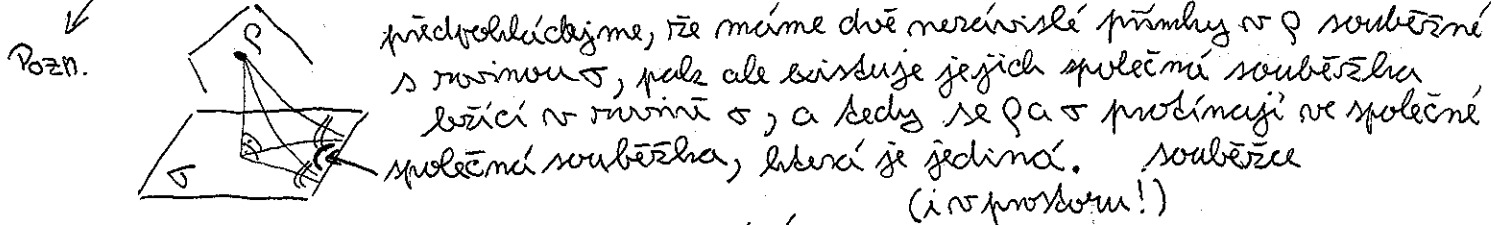 předpokládejme, že máme dvě nezávislé přímky v ρ souběžné
Pozn.
s rovinou σ, pak ale existuje jejich společná souběžka
ležící v rovině σ, a tedy se ρ a σ protínají ve společné
společná souběžka, která je jediná. souběžce
(i v prostoru!)
ρ
σ